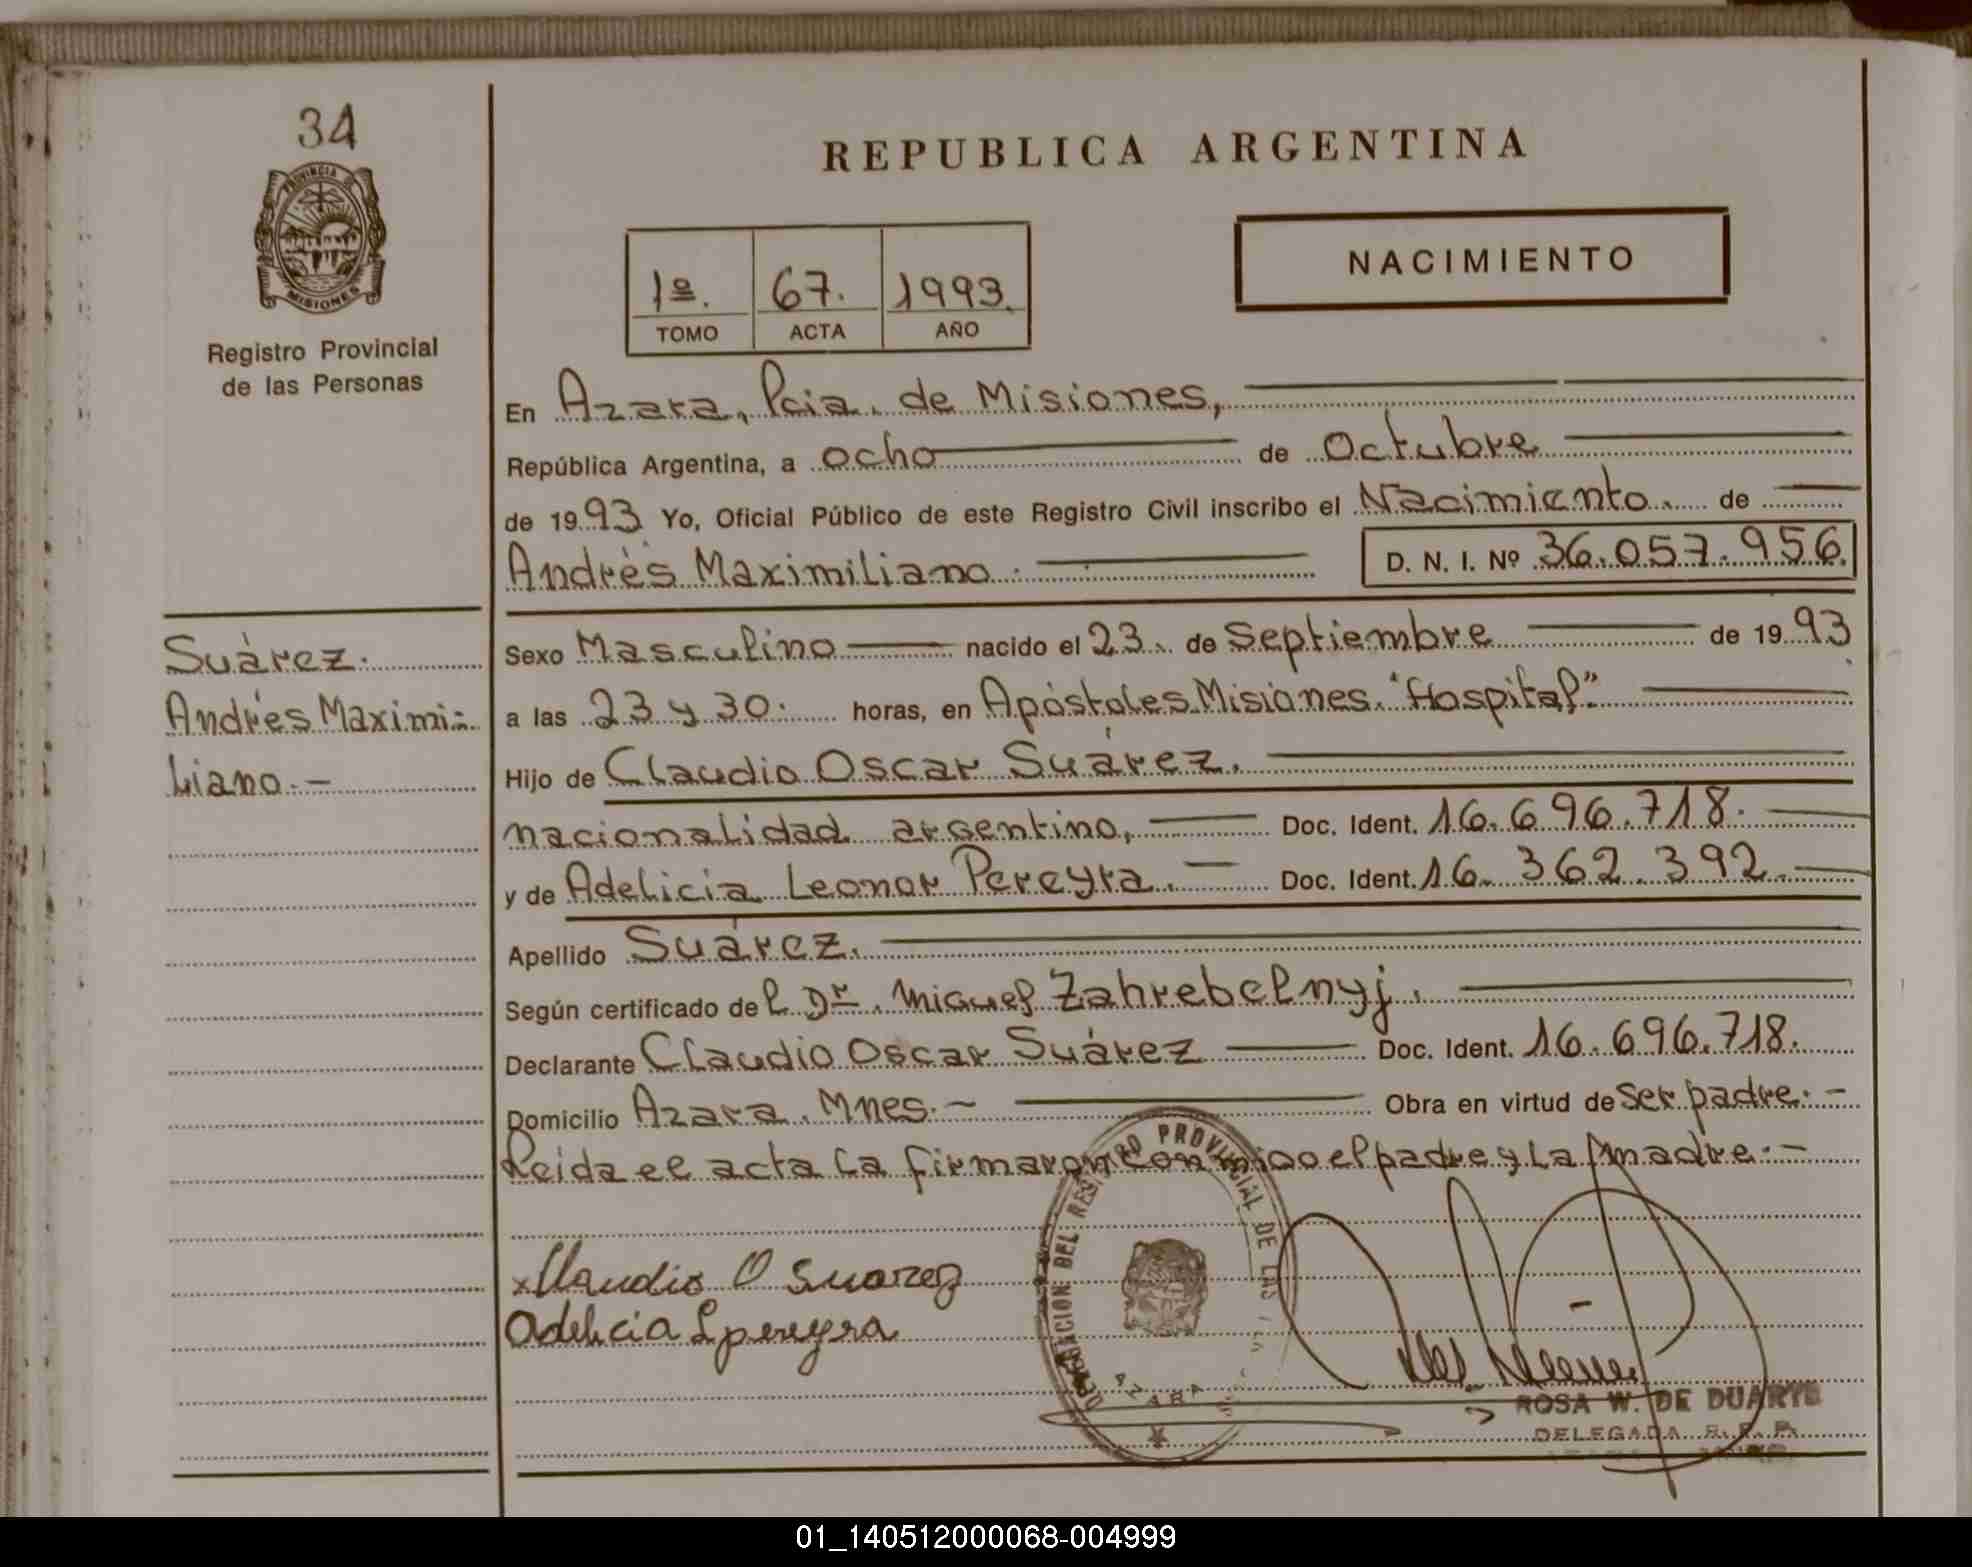 34
PROVINCIA DE
MISIONES
Registro Provincial
de las Personas
REPUBLICA ARGENTINA
1º. 67. 1993.
TOMO ACTA AÑO
NACIMIENTO
En Azara, Pcia. de Misiones,
República Argentina, a ocho de Octubre
de 1993 Yo, Oficial Público de este Registro Civil inscribo el Nacimiento. de
Andrés Maximiliano. D. N. I. Nº 36.057.956.
Suárez.
Andrés Maximi-
liano.-
Sexo Masculino nacido el 23. de Septiembre de 1993
a las 23 y 30. horas, en Apóstoles Misiones. "Hospital"
Hijo de Claudio Oscar Suárez.
nacionalidad argentino, Doc. Ident. 16.696.718.
y de Adelicia Leonor Pereyra. Doc. Ident. 16.362.392.
Apellido Suárez.
Según certificado del Dr. Miguel Zahrebelnyj.
Declarante Claudio Oscar Suárez Doc. Ident. 16.696.718.
Domicilio Azara. Mnes.- Obra en virtud de ser padre.-
Leida el acta la firmaron conmigo el padre y la madre.-
Claudio O Suarez
Adelicia L pereyra
DELEGACION DEL REGISTRO PROVINCIAL DE LAS
AZARA
ROSA W. DE DUARTE
DELEGADA R. P. P.
01_140512000068-004999